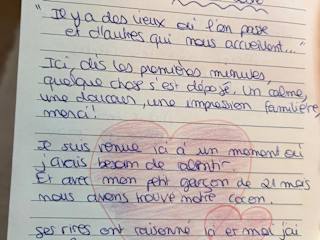 "Il y a des lieux où l'on passe
et d'autres qui nous accueillent..."
Ici, dès les premières minutes,
quelque chose s'est déposé. Un calme,
une douceur, une impression familière,
merci!
Je suis venue ici à un moment où
j'avais besoin de ralentir.
Et avec mon petit garçon de 21 mois
nous avons trouvé notre cocon.
ses rires ont raisonné ici et moi j'ai